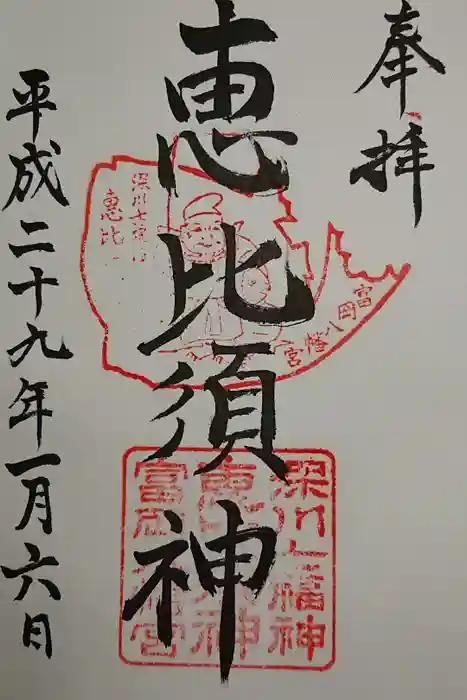 奉拝
恵比須神
平成二十九年一月六日
深川七福神
恵比
富岡八幡宮
深川七福神
恵比須神
富岡八幡宮